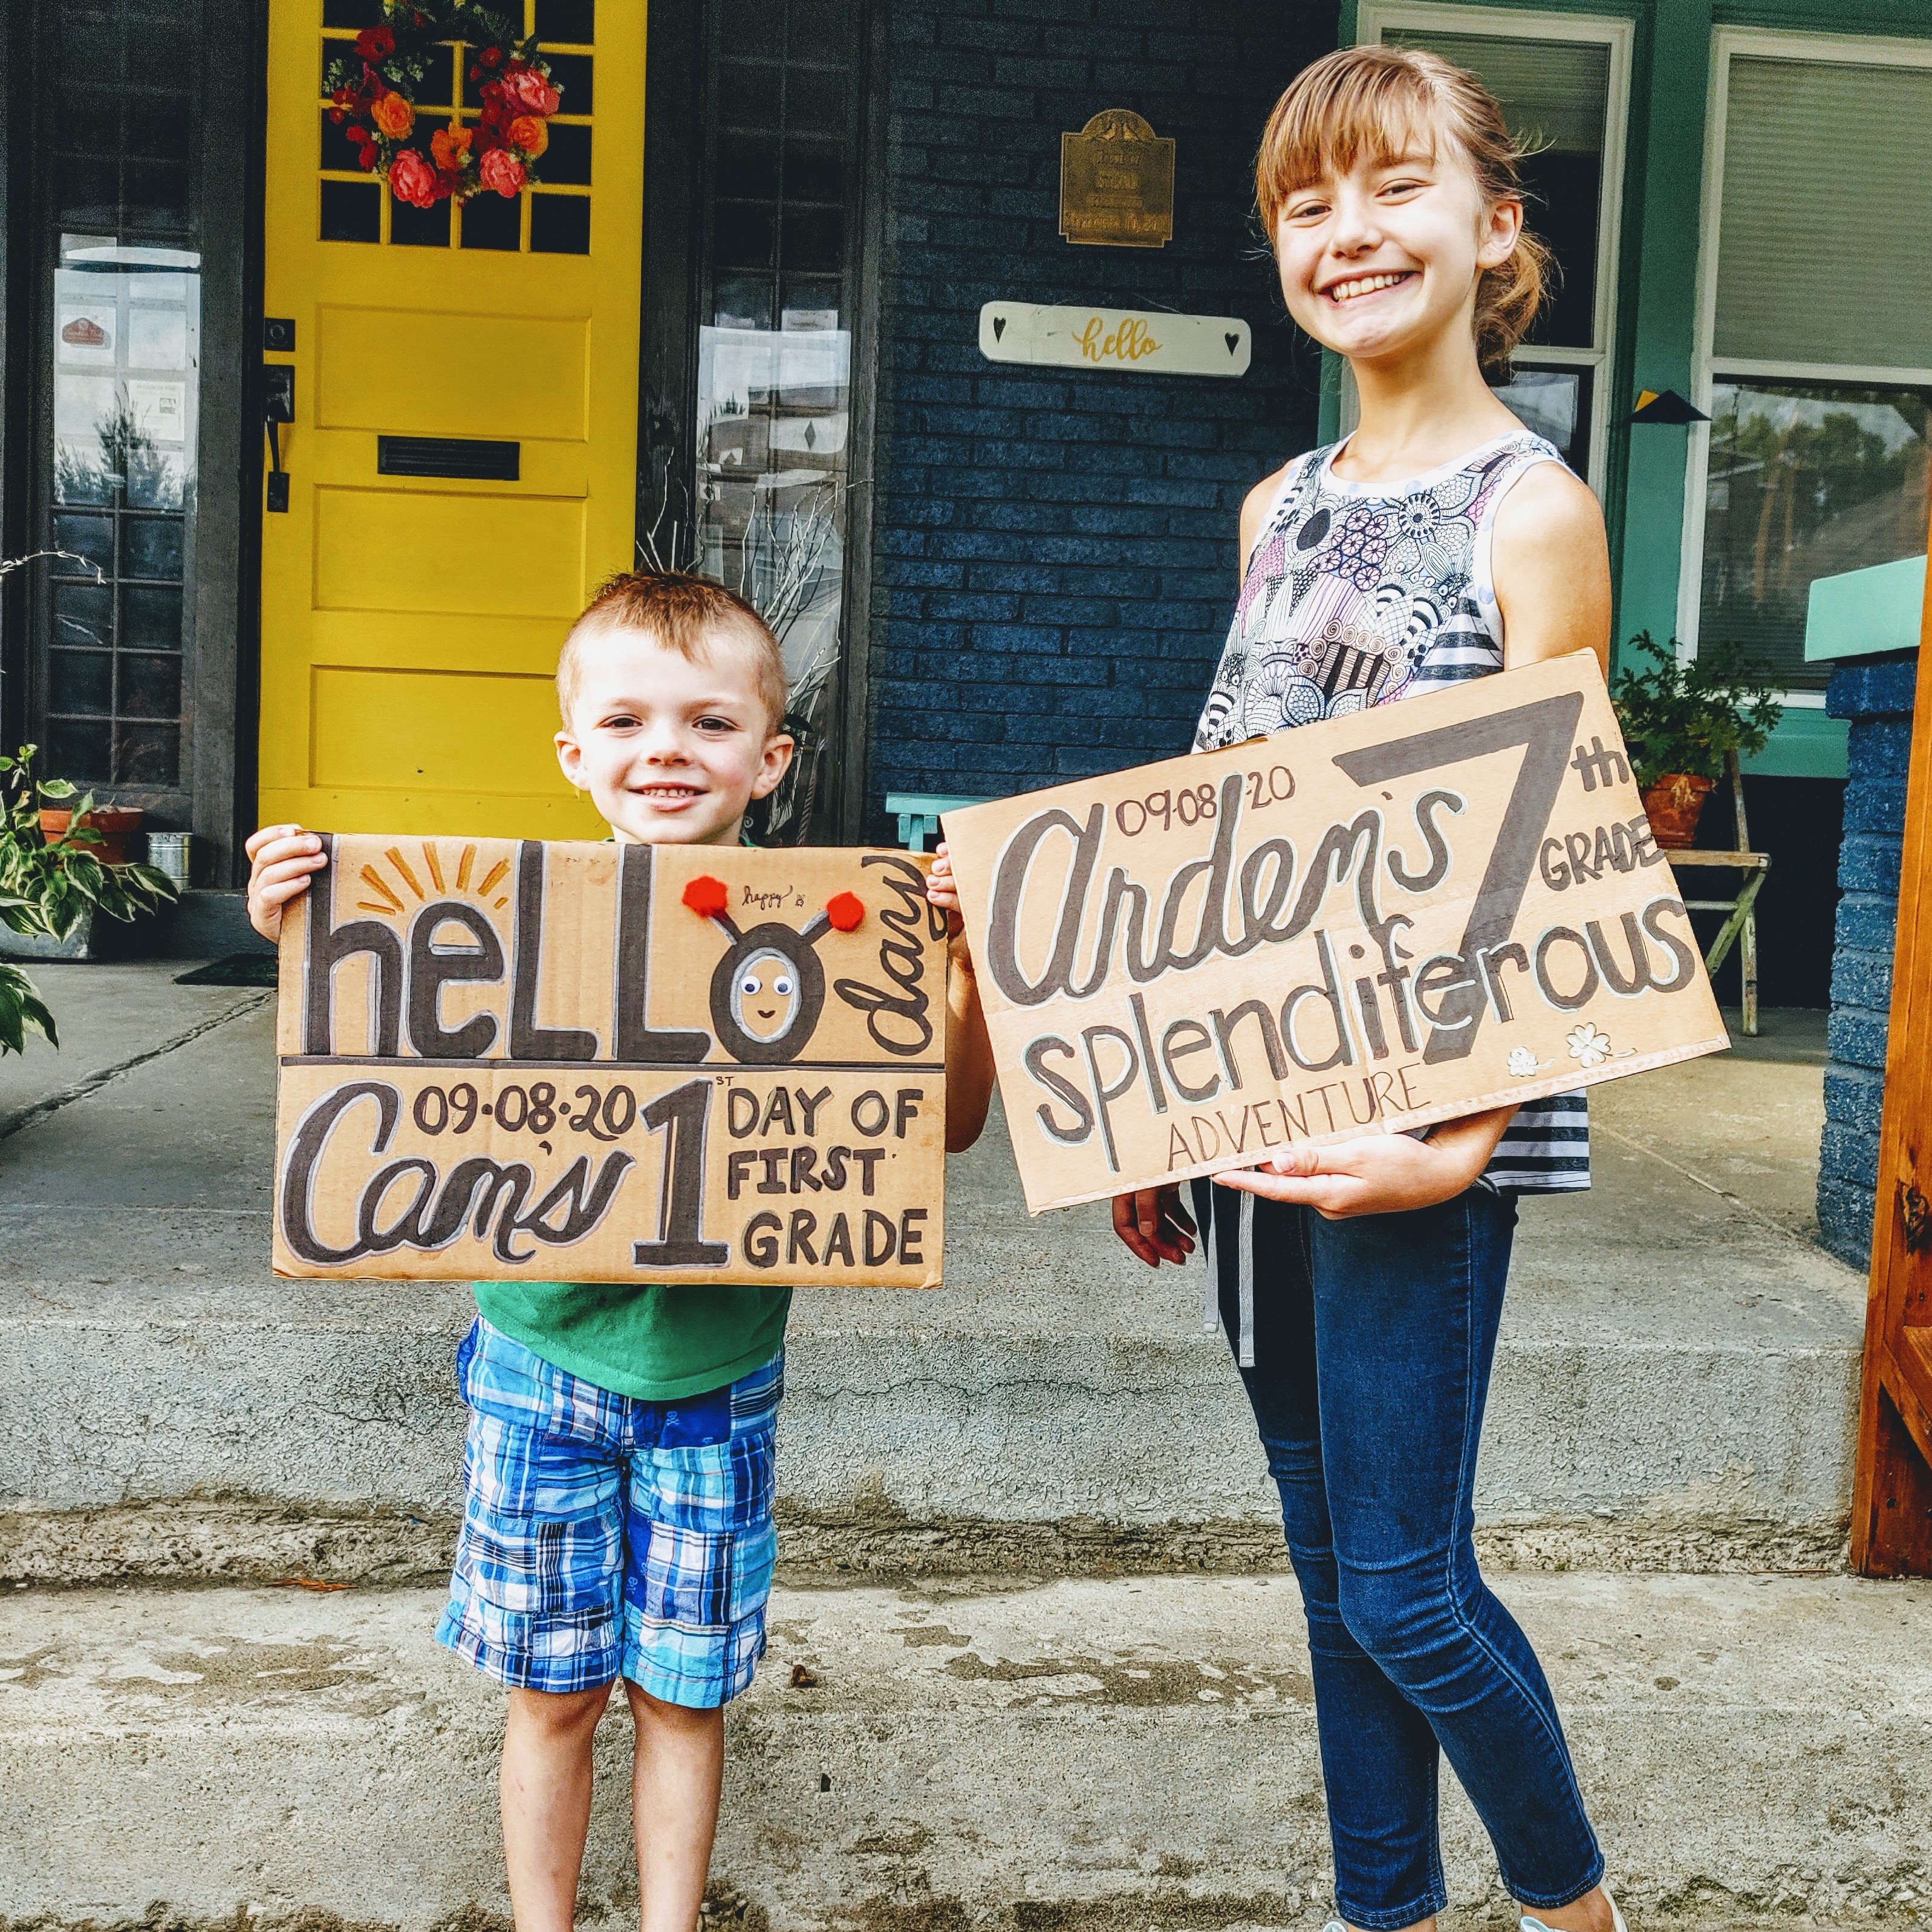 hello
heLLo
happy
day
09·08·20
Cam's 1ST DAY OF
FIRST
GRADE
09·08·20
Arden's 7th
GRADE
splendiferous
ADVENTURE